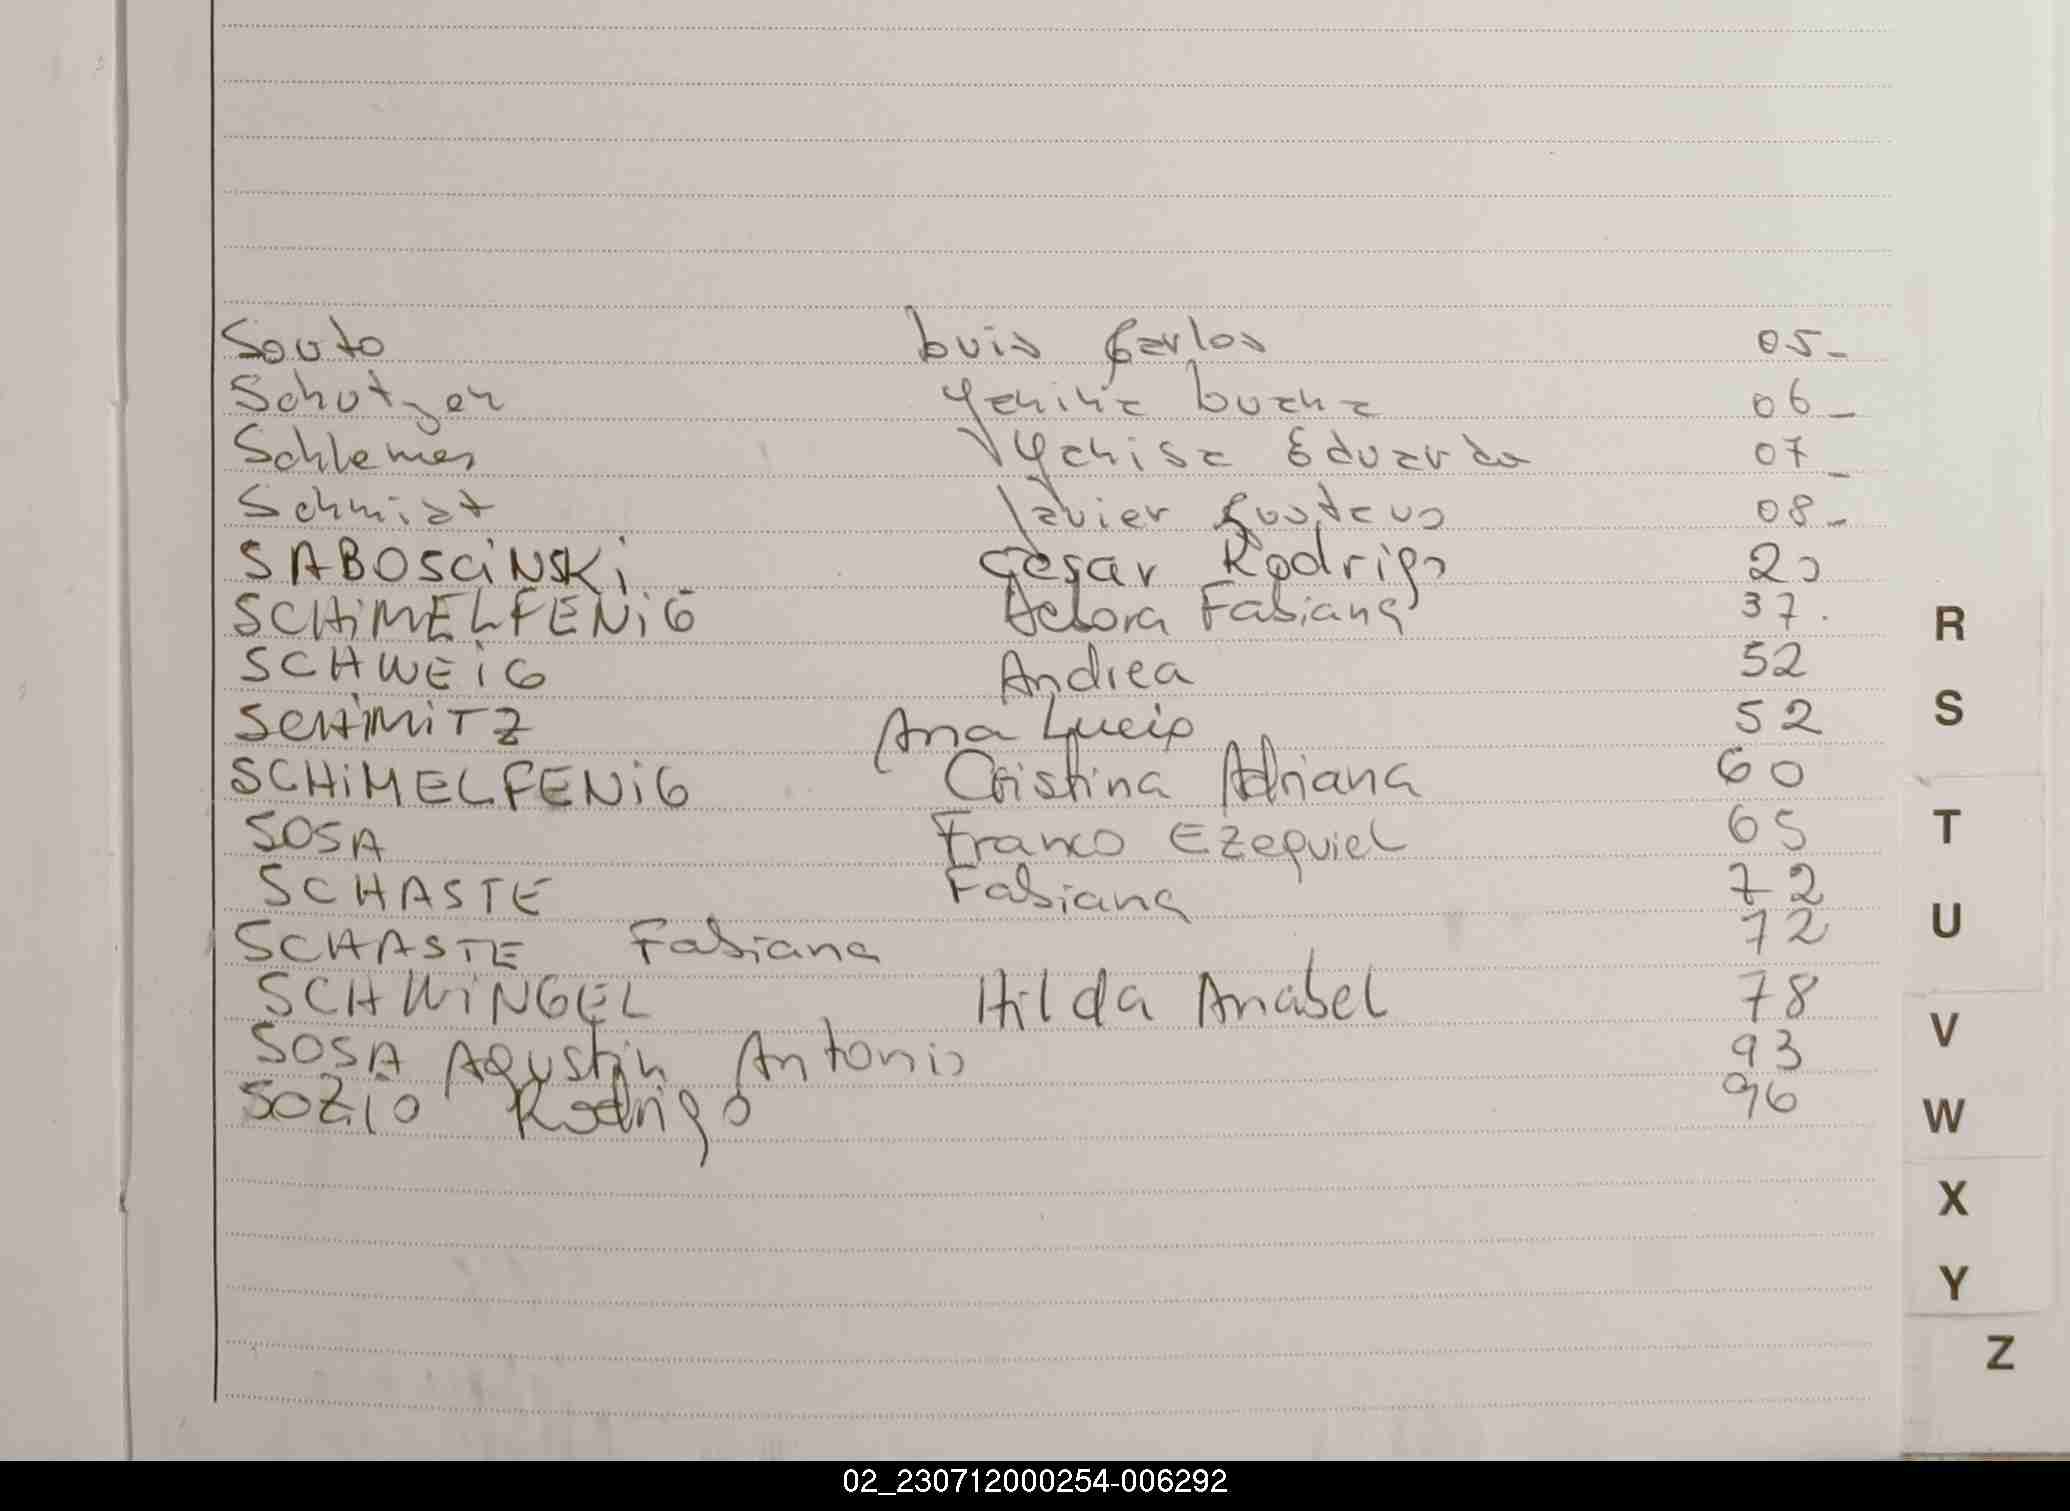 Souto Luis Carlos 05-
Schutzer Yanina Luana 06-
Schlemer Yanisa Eduarda 07-
Schmidt Javier Gustavo 08-
SABOSCINSKI Cesar Rodrigo 20
SCHIMELFENIG Debora Fabiana 37.
SCHWEIG Andrea 52
SCHMITZ Ana Lucia 52
SCHIMELFENIG Cristina Adriana 60
SOSA Franco EZEquieL 65
SCHASTE Fabiana 72
SCHASTE Fabiana 72
SCHWINGEL Hilda Anabel 78
SOSA Agustin Antonio 93
SOZIO Rodrigo 96
R
S
T
U
V
W
X
Y
Z
02_230712000254-006292